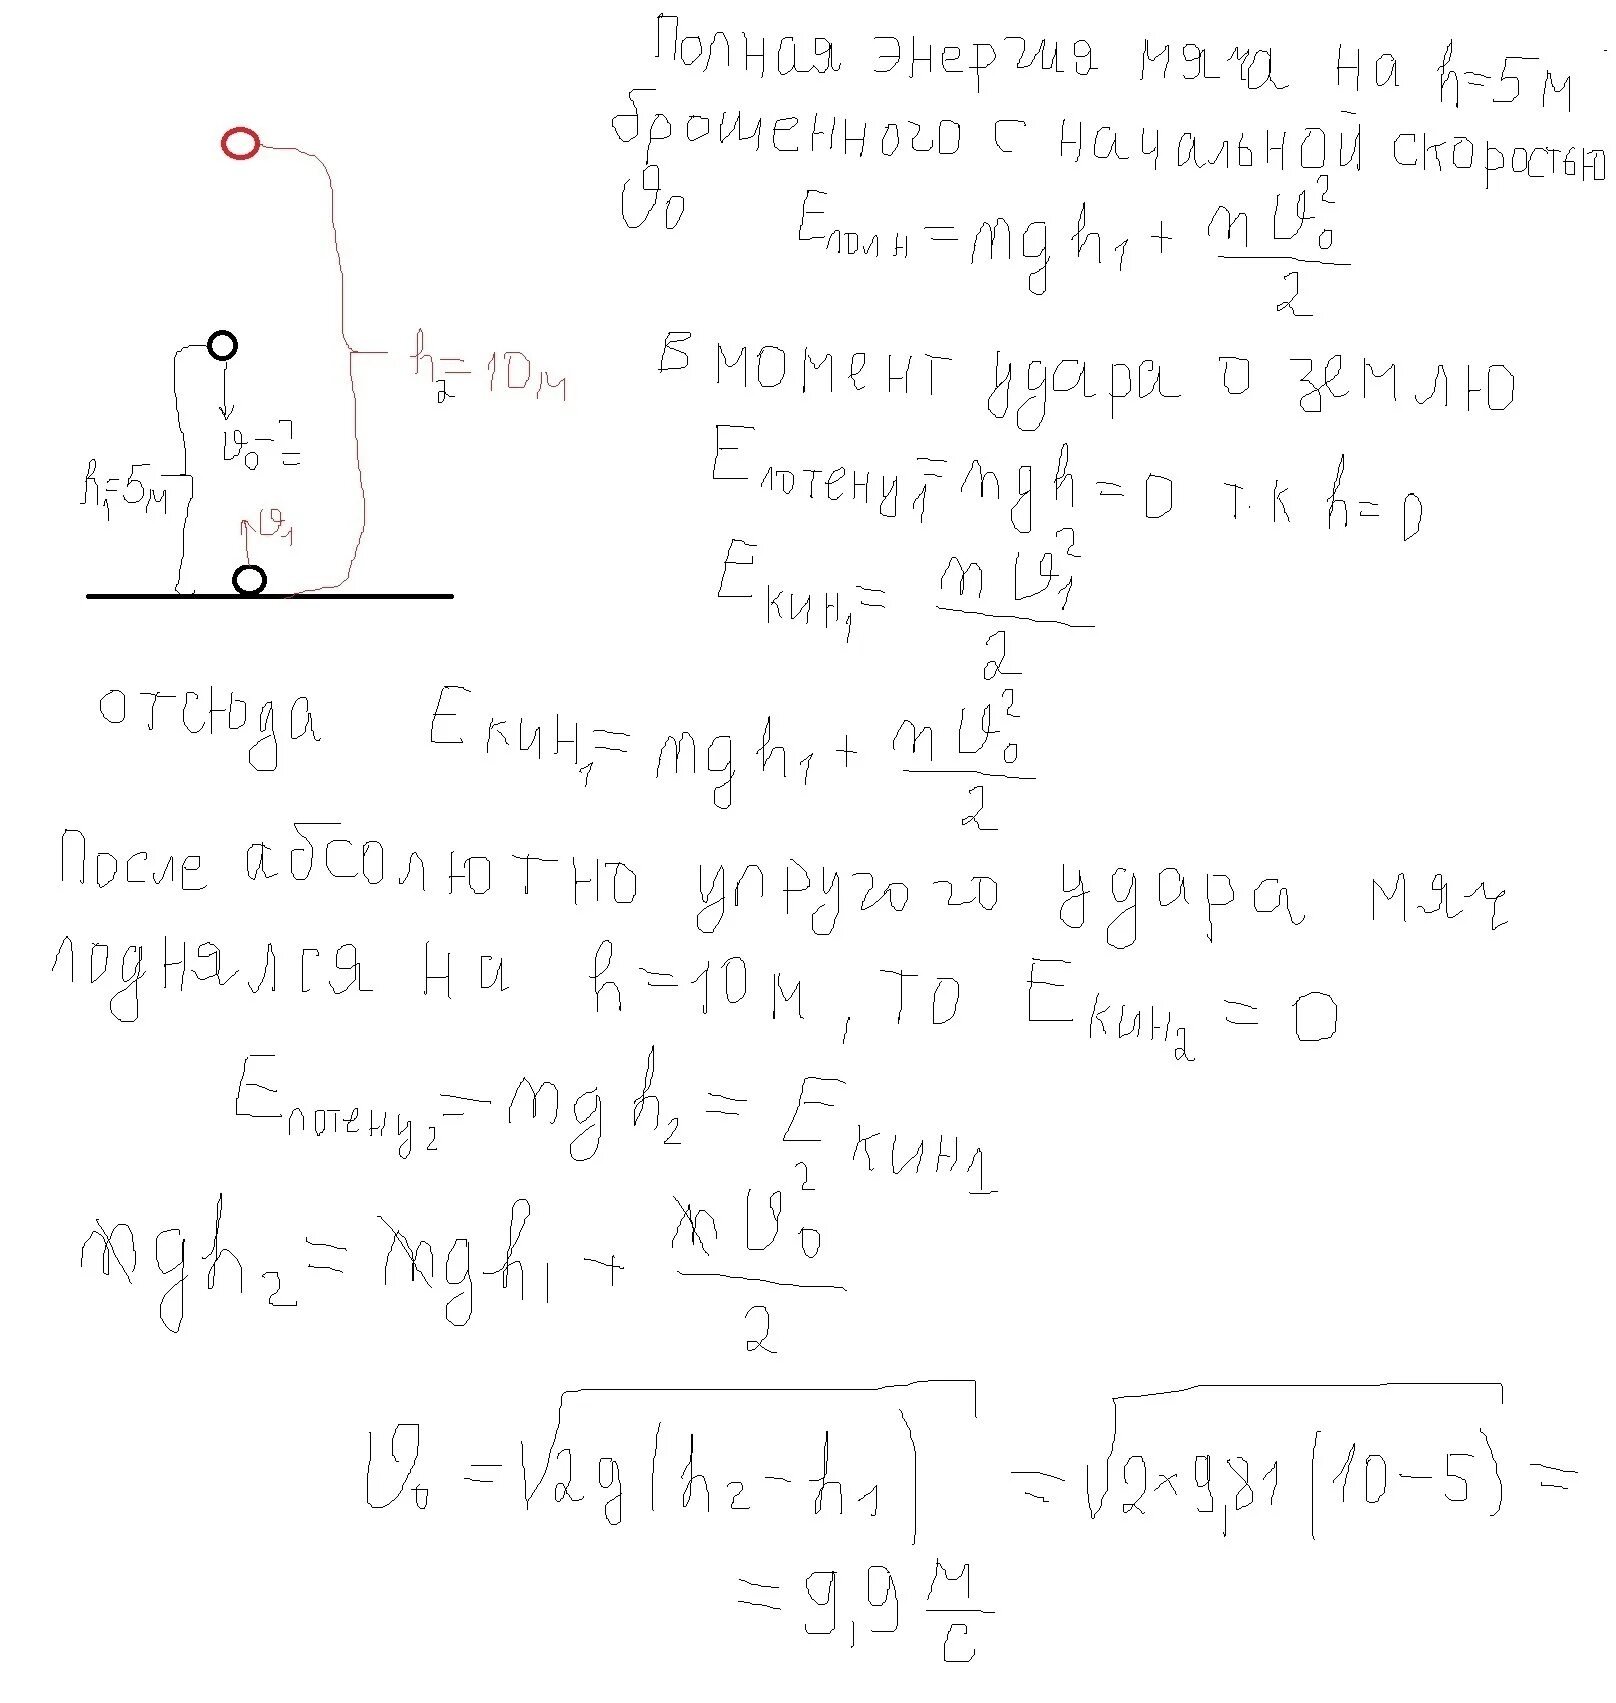 Полная энергия мяча на h=5м
брошенного с начальной скоростью
υ₀ Eполн = mgh₁ + mυ₀²/2
h₂=10м
υ₀-?
h₁=5м
υ₁
В момент удара о землю
Eпотенц₁ = mgh = 0 т.к h=0
Eкин₁ = mυ₁²/2
отсюда Eкин₁ = mgh₁ + mυ₀²/2
После абсолютно упругого удара мяч
поднялся на h=10м, то Eкин₂ = 0
Eпотенц₂ = mgh₂ = Eкин₁
mgh₂ = mgh₁ + mυ₀²/2
υ₀ = √2g(h₂-h₁) = √2×9,81(10-5) =
= 9,9 м/с